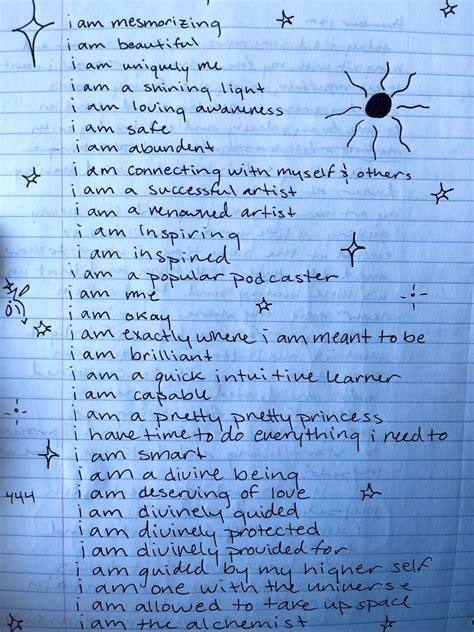 i am mesmorizing
i am beautiful
i am uniquely me
i am a shining light
i am loving awareness
i am safe
i am abundent
i am connecting with myself & others
i am a successful artist
i am a renowned artist
i am inspiring
i am inspired
i am a popular podcaster
i am me
i am okay
i am exactly where i am meant to be
i am brilliant
i am a quick intuitive learner
i am capable
i am a pretty pretty princess
i have time to do everything i need to
i am smart
i am a divine being
444 i am deserving of love
i am divinely guided
i am divinely protected
i am divinely provided for
i am guided by my higher self
i am one with the universe
i am allowed to take up space
i am the alchemist